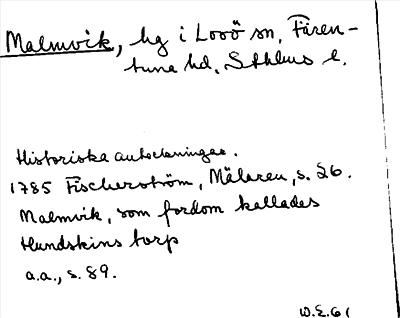 Malmvik, hg i Lovö sn, Fären-
tuna hd, Sthlms l.
Historiska anteckningar.
1785 Fischerström, Mälaren, s. 26.
Malmvik, som fordom kallades
Hundskins torp
a.a., s. 89.
W.E. 61